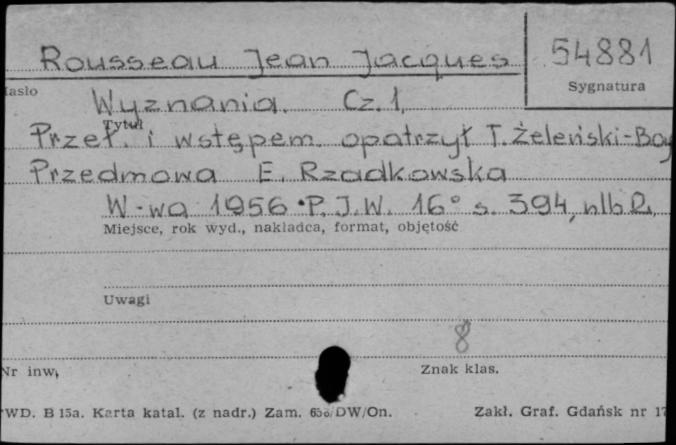 Rousseau Jean Jacques
54881
Hasło
Sygnatura
Wyznania. Cz. 1.
Tytuł
Przeł. i wstępem opatrzył T. Żeleński-Boy
Przedmowa E. Rzadkowska
W-wa 1956 P.I.W. 16° s. 394, nlb 2.
Miejsce, rok wyd., nakładca, format, objętość
Uwagi
8
Nr inw.
Znak klas.
WD. B 15a. Karta katal. (z nadr.) Zam. /DW/On.
Zakł. Graf. Gdańsk nr 17